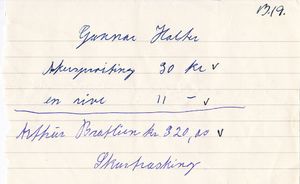 1319.
Gunnar Holte
Akersprøiting 30 kr v
en rive 11 – v
Arthur Bratlien kr 320,00 v
Skurtrasking